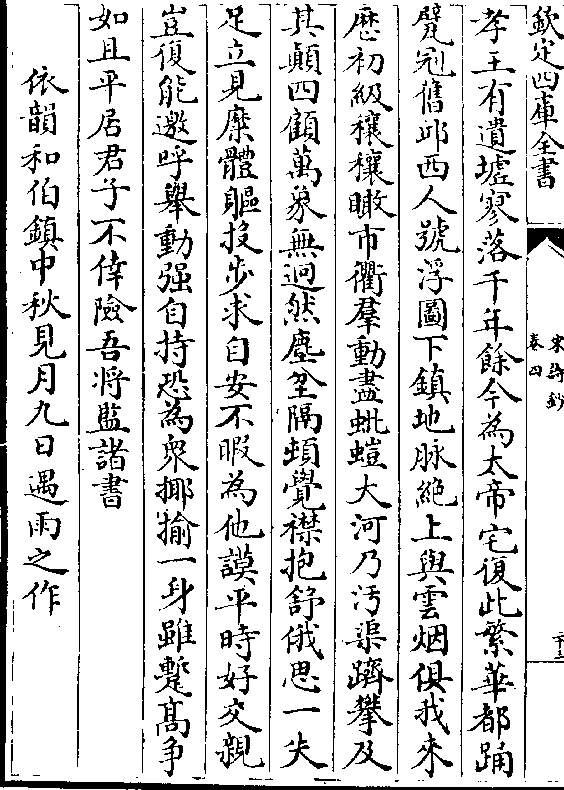 欽定四庫全書
宋詩鈔
卷四
二十三
孝王有遺墟寥落千年餘今為太帝宅復此繁華都踊
甓冠舊邱西人號浮圖下鎮地脉絶上與雲烟俱我來
歴初級穰穰瞰市衢羣動盡蚍螘大河乃汚渠躋攀及
其顛四顧萬象無迥然塵坌隔頓覺襟抱舒俄思一失
足立見糜體軀投歩求自安不暇為他謨平時好交親
豈復能邀呼舉動强自持恐為衆揶揄一身雖蹔髙争
如且平居君子不倖險吾将監諸書
依韻和伯鎮中秋見月九日遇雨之作